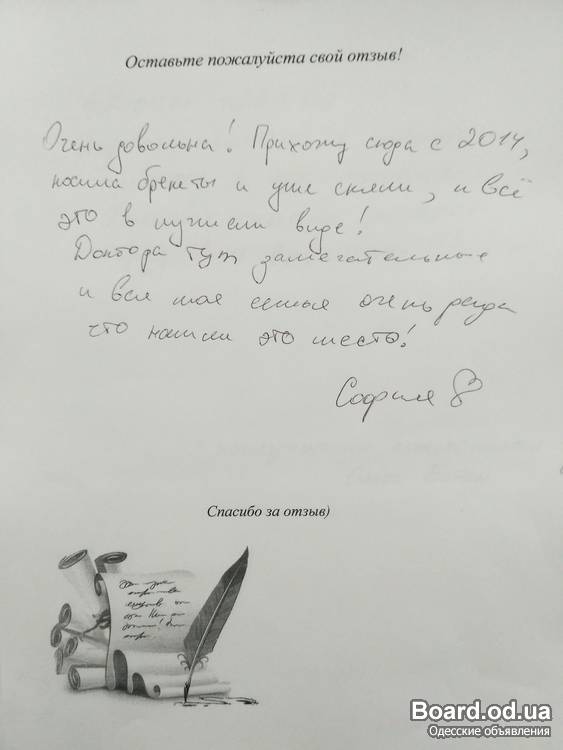 Оставьте пожалуйста свой отзыв!
Очень довольна! Прихожу сюда с 2014,
носила брекеты и уже сняли, и всё
это в лучшем виде!
Доктора тут замечательные
и вся моя семья очень рада
что нашли это место!
София
Спасибо за отзыв)
Board.od.ua
Одесские объявления